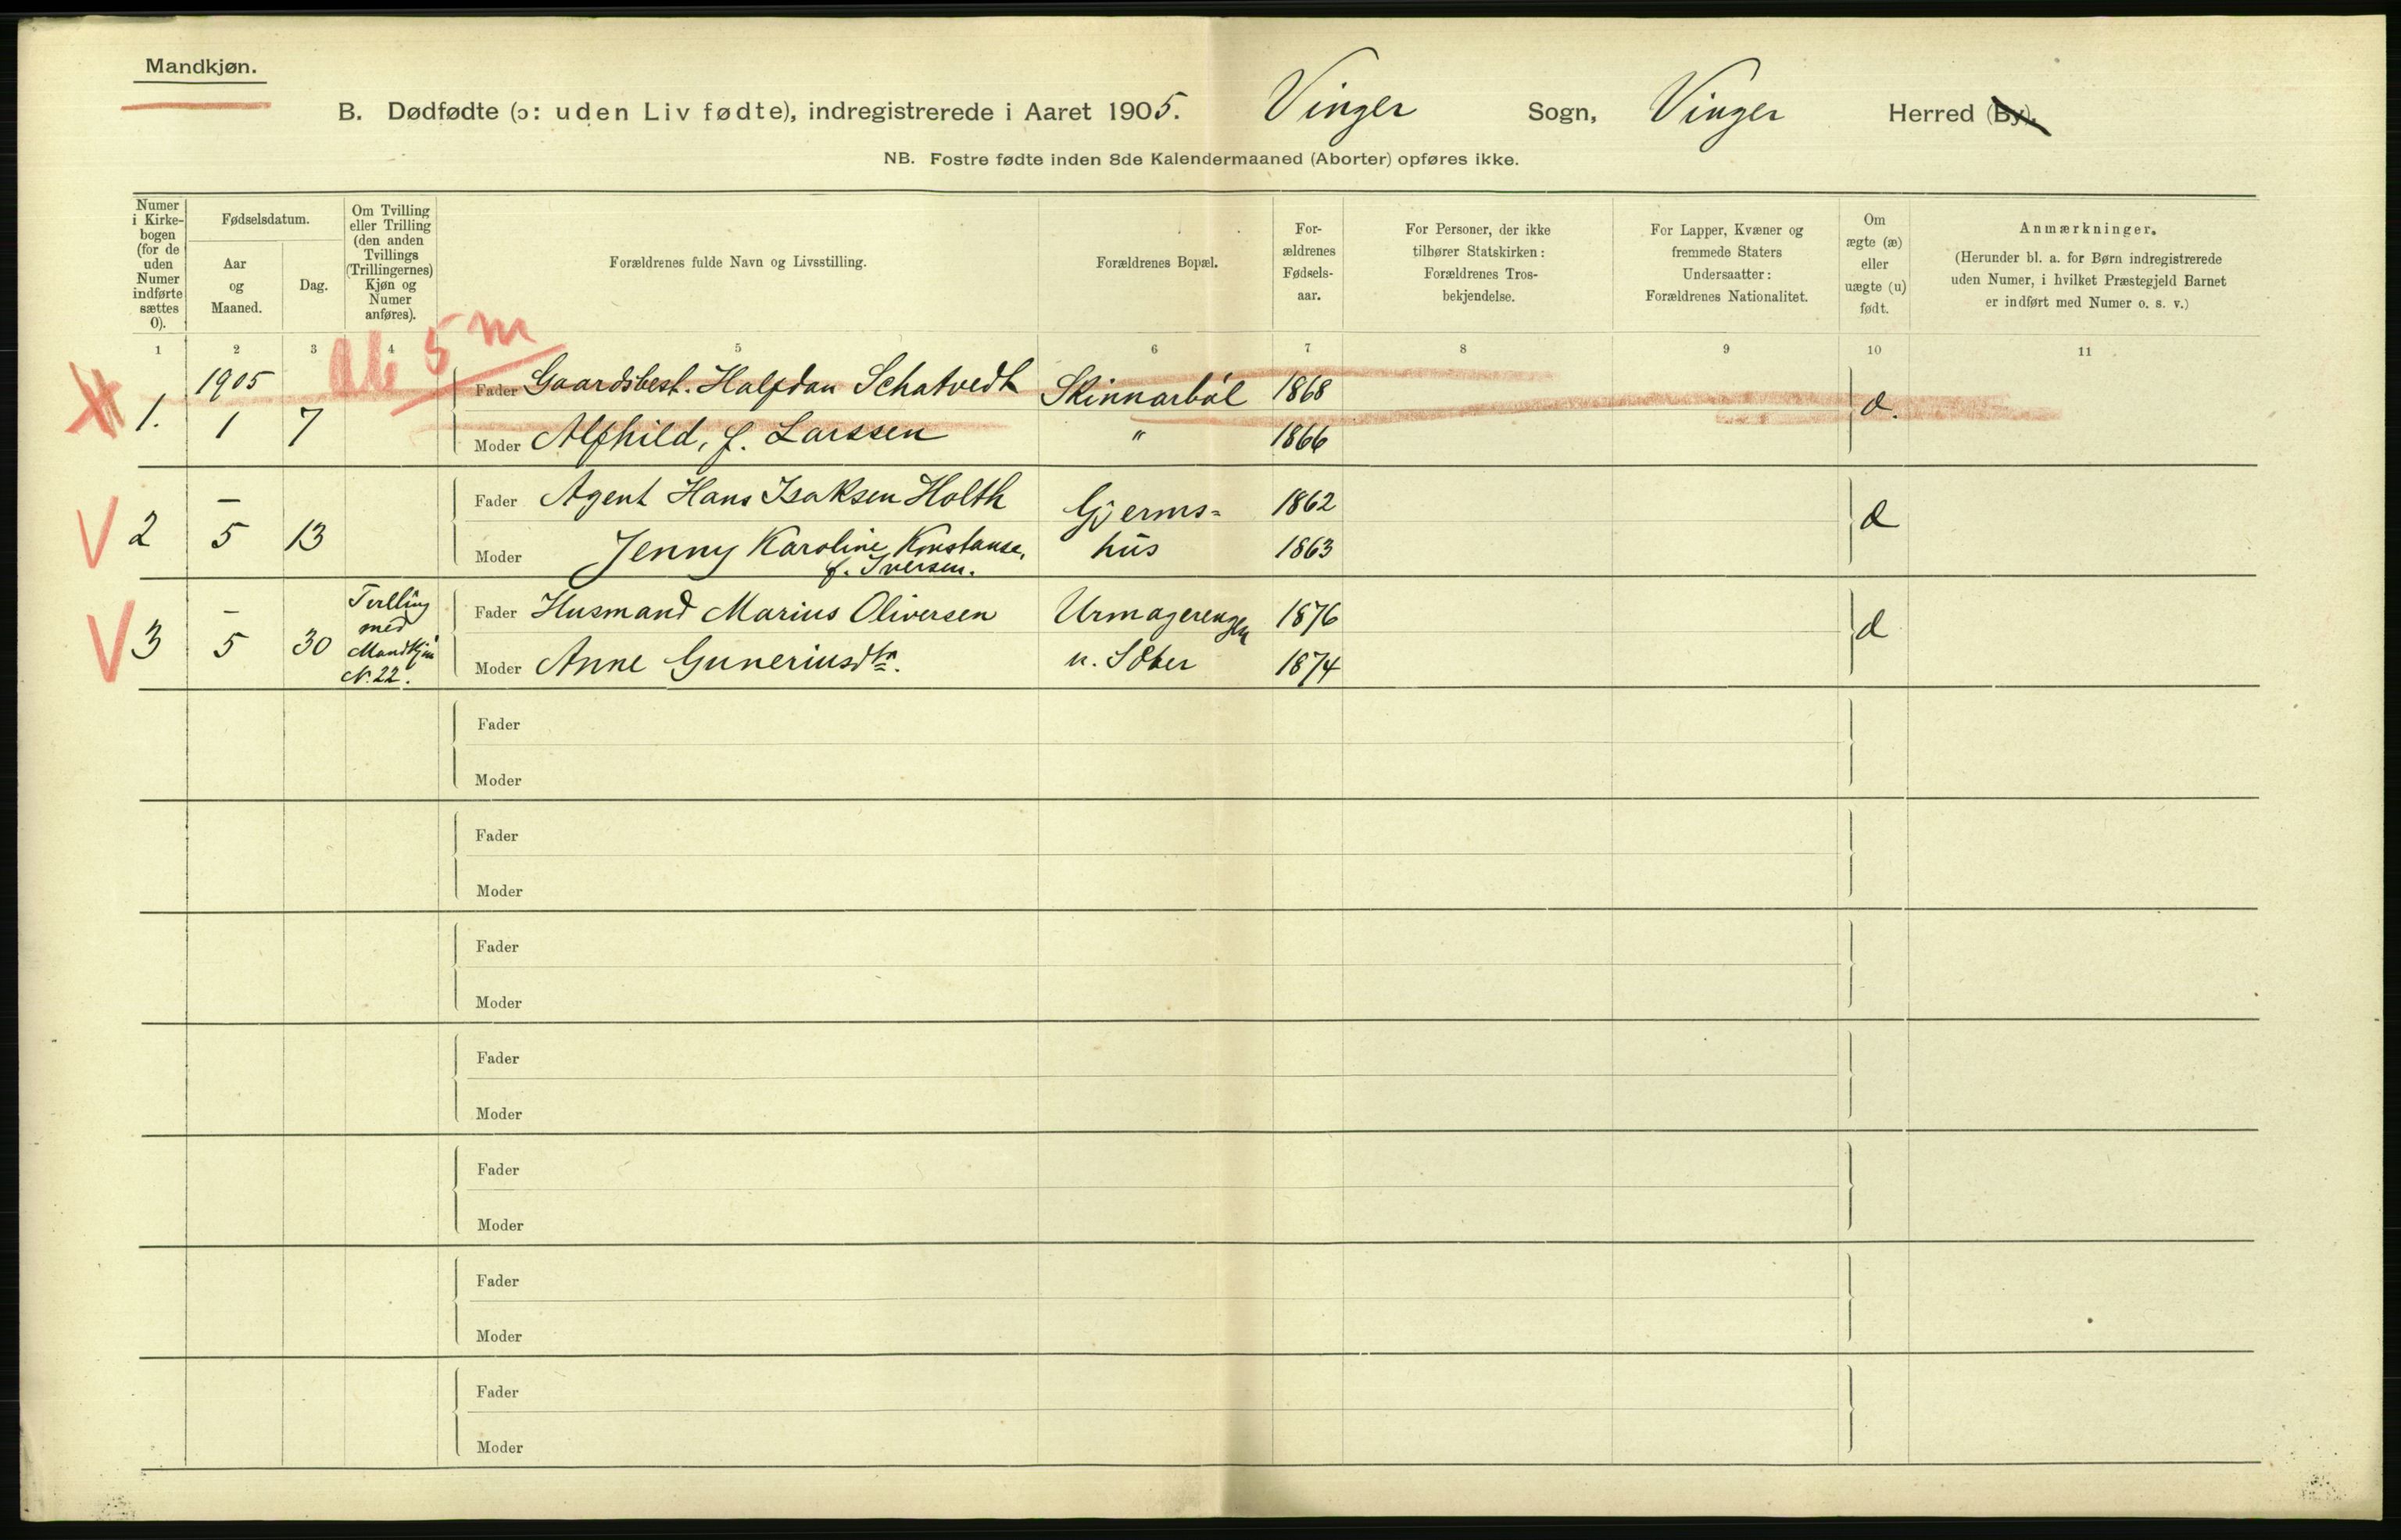 Mandkjøn.
B. Dødfødte (ɔ: uden Liv fødte), indregistrerede i Aaret 1905. Vinger Sogn, Vinger Herred (By).
NB. Fostre fødte inden 8de Kalendermaaned (Aborter) opføres ikke.
Numer i Kirke-bogen (for de uden Numer indførte sættes 0).
Fødselsdatum.
Aar og Maaned.
Dag.
Om Tvilling eller Trilling (den anden Tvillings (Trillingernes) Kjøn og Numer anføres).
Forældrenes fulde Navn og Livsstilling.
Forældrenes Bopæl.
For-ældrenes Fødsels-aar.
For Personer, der ikke tilhører Statskirken: Forældrenes Tros-bekjendelse.
For Lapper, Kvæner og fremmede Staters Undersaatter: Forældrenes Nationalitet.
Om ægte (æ) eller uægte (u) født.
Anmærkninger.
(Herunder bl. a. for Børn indregistrerede uden Numer, i hvilket Præstegjeld Barnet er indført med Numer o. s. v.)
1 2 3 4 5 6 7 8 9 10 11
Ab 5 m
1905
1. 1 7 Fader Gaardsbest. Halfdan Schatvedt Skinnarböl 1868 æ.
Moder Alfhild, f. Larssen " 1866
2 – 5 13 Fader Agent Hans Isaksen Holth Gjerms= 1862 æ
Moder Jenny Karoline Konstanse, hus 1863
f. Iversen.
3 – 5 30 Tvilling med Mandkjøn N. 22. Fader Husmand Marius Oliversen Urmagerengen 1876 æ
Moder Anne Guneriusdtr. u. 1874
Fader
Moder
Fader
Moder
Fader
Moder
Fader
Moder
Fader
Moder
Fader
Moder
Fader
Moder